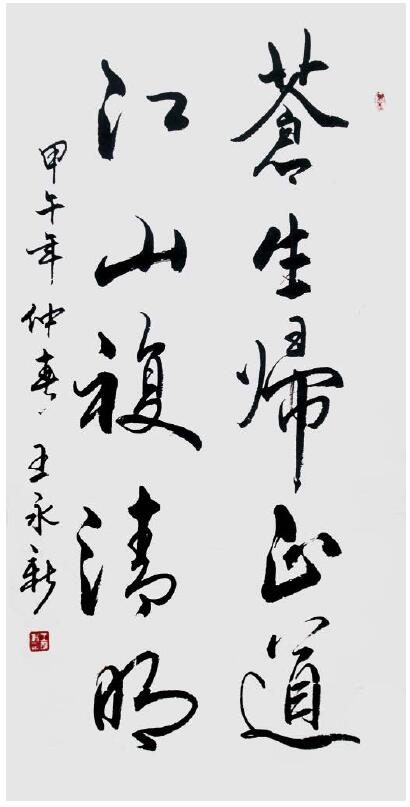 蒼生帰正道
江山複清明
甲午年仲春 王永新